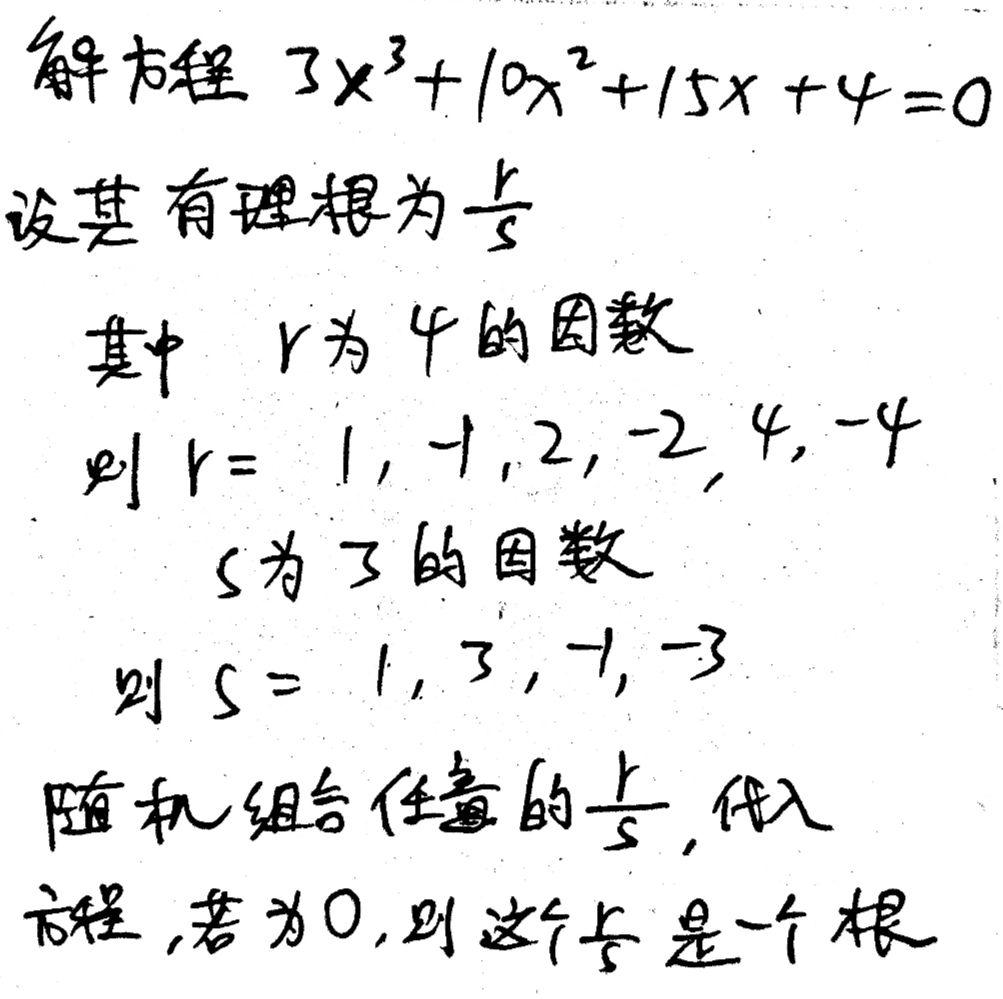 解方程 3x³+10x²+15x+4=0
设其有理根为 r/s
其中 r为4的因数
则 r= 1, -1, 2, -2, 4, -4
s为3的因数
则 s= 1, 3, -1, -3
随机组合任意的 r/s, 代入
方程,若为0,则这个 r/s 是一个根